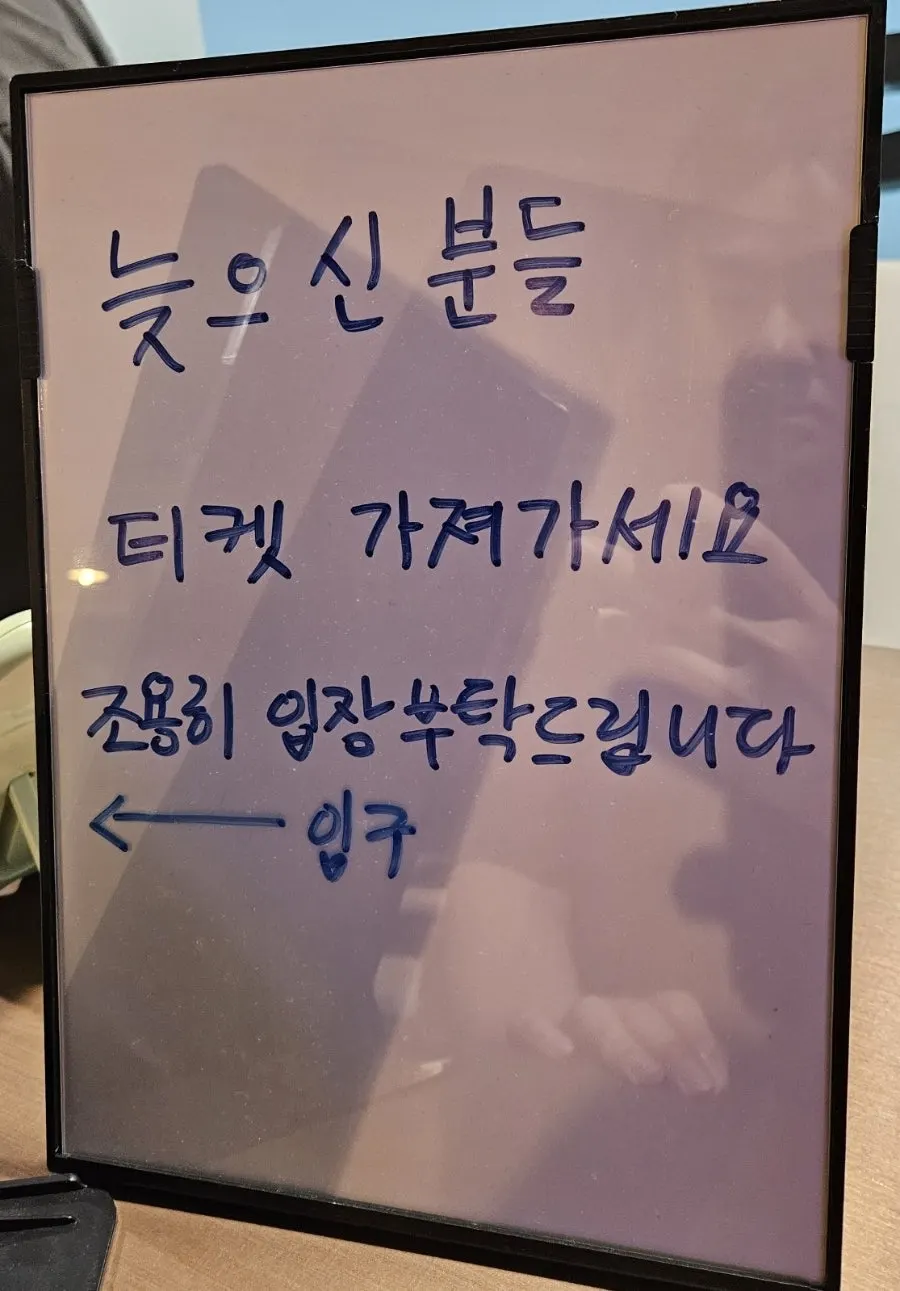 늦으신 분들
티켓 가져가세요
조용히 입장부탁드립니다
← 입구